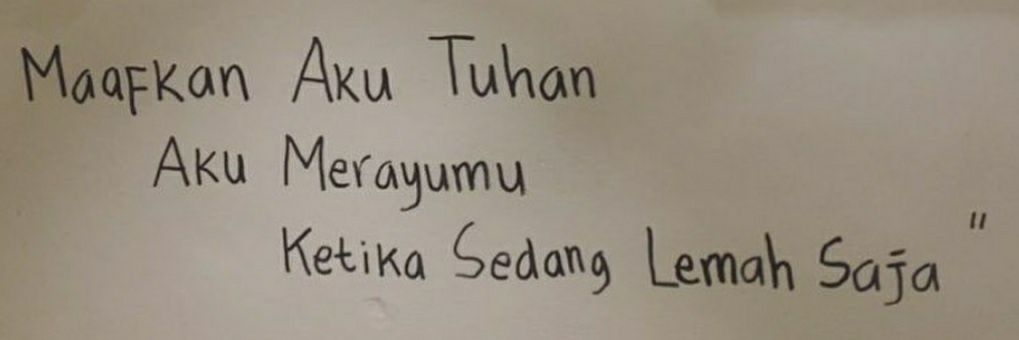 Maafkan Aku Tuhan
Aku Merayumu
Ketika Sedang Lemah Saja "